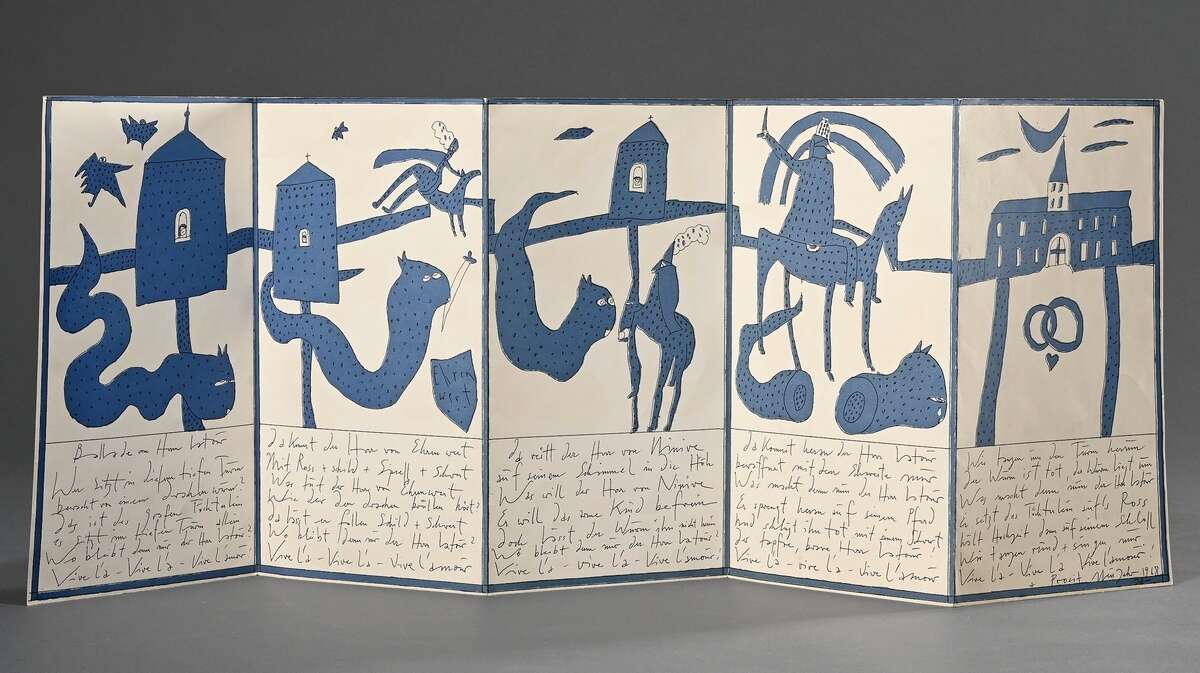 Ehren
wert
Ballade vom Herrn Latour
Wer sitzt in diesem tiefen Turm
bewacht von einem Drachenwurm?
das ist des Töchterlein
es sitzt im tiefen Turm allein
Wo bleibt denn nur der Herr Latour?
Vive l'a - Vive l'a - Vive l'amour
da kommt der Herr von Ehrenwert
Mit Ross + Schild + Speer + Schwert
Was tut der Herr von Ehrenwert
Wie er den Drachen brüllen hört?
da lässt er fallen Schild + Schwert
Wo bleibt denn nur der Herr Latour?
Vive l'a - Vive l'a - Vive l'amour
da reitt der Herr von Ninive
auf seinem Schimmel in die Höh
Was will der Herr von Ninive
Er will das arme Kind befrein
doch lässt der Wurm ihn nicht herein
Wo bleibt denn nur, der Herr Latour?
Vive l'a - Vive l'a - Vive l'amour!
da kommt heran der Herr Latour
bewaffnet mit dem Schwerte nur
Was macht denn nun der Herr Latour
Er sprengt heran auf seinem Pferd
und schlägt ihn tot mit seinem Schwert
der tapfre, brave Herr Latour
Vive l'a - vive l'a - vive l'amour
Wir tanzen um den Turm herum
der Wurm ist tot, der Wurm liegt um
Was macht denn nun der Herr Latour
Er setzt das Töchterlein aufs Ross
hält Hochzeit dann auf seinem Schloss
Wir tanzen rund + singen nur
Vive l'a - Vive l'a Vive l'amour!
Prosit Neujahr 1968